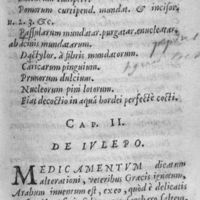 Pomorum curtipend. mundat. & incisor.
u. i. ʒ. &c.
Passularum mundatar. purgatar. enucleatar.
ab acinis mundatarum.
Dactylor. à fibris mundatorum.
Caricarum pinguium.
Prunorum dulcium.
Nucleorum pini lotorum.
Fiat decoctio in aquâ hordei perfectè cocti.
CAP. II.
DE IVLEPO.
MEDICAMENTVM dicatum
alterationi, veteribus Græcis ignotum,
Arabum inuentum est, ex eo, quòd è delicatis